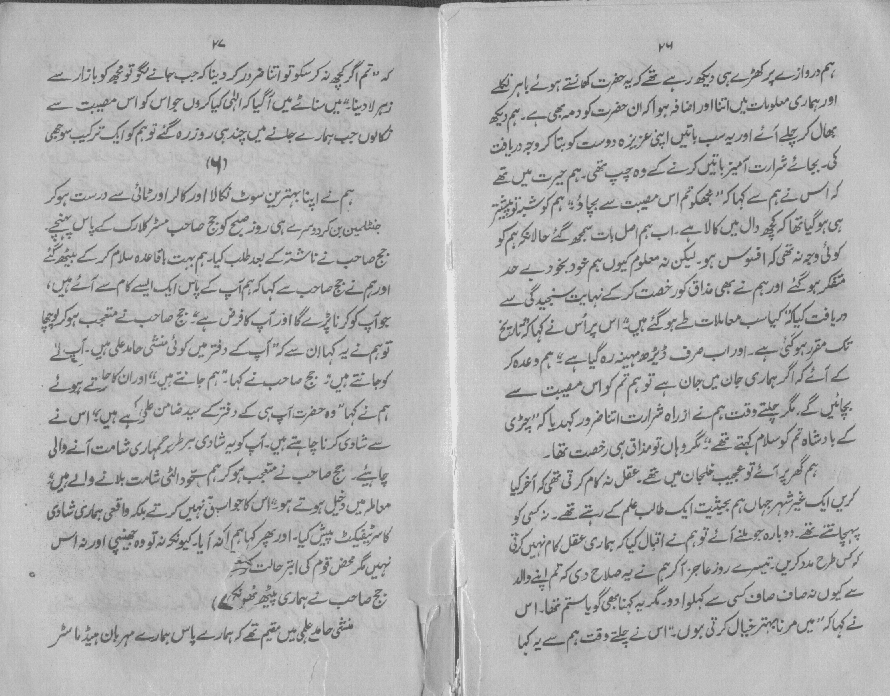 ۲۶
ہم دروازے پر کھڑے ہی دیکھ رہے تھے کہ یہ حضرت کھانستے ہوئے باہر نکلے
اور ہماری معلومات میں اتنا اور اضافہ ہوا کہ ان حضرت کو دمہ بھی ہے۔ ہم دیکھ
بھال کر چلے آئے اور یہ سب باتیں اپنی عزیزہ دوست کو بتا کر وجہ دریافت
کی۔ بجائے شرارت آمیز باتیں کرنے کے وہ چپ تھی۔ ہم حیرت میں تھے
کہ اُس نے ہم سے کہا کہ "مجھ کو تم اس مصیبت سے بچاؤ" ہم کو شبہ تو پیشتر
ہی ہو گیا تھا کہ کچھ دال میں کالا ہے۔ اب ہم اصل بات سمجھ گئے حالانکہ ہم کو
کوئی وجہ نہ تھی کہ افسوس ہو۔ لیکن نہ معلوم کیوں ہم خود بخود بے حد
متفکر ہو گئے اور ہم نے بھی مذاق کو رخصت کر کے نہایت سنجیدگی سے
دریافت کیا کہ "کیا سب معاملات طے ہو گئے ہیں" اس پر اُس نے کہا کہ "تاریخ
تک مقرر ہو گئی ہے۔ اور اب صرف ڈیڑھ مہینہ رہ گیا ہے" ہم وعدہ کر
کے آئے کہ اگر ہماری جان میں جان ہے تو ہم تم کو اس مصیبت سے
بچائیں گے۔ مگر چلتے وقت ہم نے از راہ شرارت اتنا ضرور کہدیا کہ "چڑی
کے بادشاہ تم کو سلام کہتے تھے" مگر وہاں تو مذاق ہی رخصت تھا۔
ہم گھر پر آئے تو عجیب خلجان میں تھے۔ عقل نہ کام کرتی تھی کہ آخر کیا
کریں ایک غیر شہر جہاں ہم بحیثیت ایک طالب علم کے رہتے تھے۔ نہ کسی کو
پہچانتے تھے۔ دوبارہ جو ملنے آئے تو ہم نے اقبال کیا کہ ہماری عقل کام نہیں کرتی
کہ کس طرح مدد کریں۔ تیسرے روز عاجز آ کر ہم نے یہ صلاح دی کہ تم اپنے والد
سے کیوں نہ صاف صاف کسی سے کہلوا دو۔ مگر یہ کہنا بھی گویا ستم تھا۔ اس
نے کہا کہ "میں مرنا بہتر خیال کرتی ہوں۔" اس نے چلتے وقت ہم سے یہ کہا
۲۷
کہ "تم اگر کچھ نہ کر سکو تو اتنا ضرور کر دینا کہ جب جانے لگو تو مجھ کو بازار سے
زہر لا دینا" میں سناٹے میں آ گیا کہ الٰہی کیا کروں جو اس کو اس مصیبت سے
نکالوں جب ہمارے جانے میں چند ہی روز رہ گئے تو ہم کو ایک ترکیب سوجھی
(۶)
ہم نے اپنا بہترین سوٹ نکالا اور کالر اور ٹائی سے درست ہو کر
جنٹلمین بن کر دوسرے ہی روز صبح کو جج صاحب مسٹر کلارک کے پاس پہنچے۔
جج صاحب نے ناشتہ کے بعد طلب کیا۔ ہم بہت باقاعدہ سلام کر کے بیٹھ گئے
اور ہم نے جج صاحب سے کہا کہ ہم آپ کے پاس ایک ایسے کام سے آئے ہیں،
جو آپ کو کرنا پڑے گا اور آپ کا فرض ہے" جج صاحب نے متعجب ہو کر پوچھا
تو ہم نے یہ کہا ان سے کہ "آپ کے دفتر میں کوئی منشی حامد علی ہیں۔ آپ اُن
کو جانتے ہیں" جج صاحب نے کہا۔ "ہم جانتے ہیں" اور ان کا
ہم نے کہا "وہ حضرت آپ ہی کے دفتر کے سید ضامن علی کے ہیں" اس نے
سے شادی کرنا چاہتے ہیں۔ آپ کو یہ شادی ہر طرح
چاہئیے۔ جج صاحب نے متعجب ہو کر ہم سے
معاملہ میں دخیل ہوتے ہو۔" اس کا جواب
کا سرٹیفکیٹ پیش کیا۔ اور پھر کہا ہم
نہیں مگر محض قوم کی ابتر حالت
جج صاحب نے ہماری پیٹھ ٹھونکی
منشی حامد علی ہیں مقیم تھے کہ ہمارے پاس ہمارے مہربان ہیڈ ماسٹر